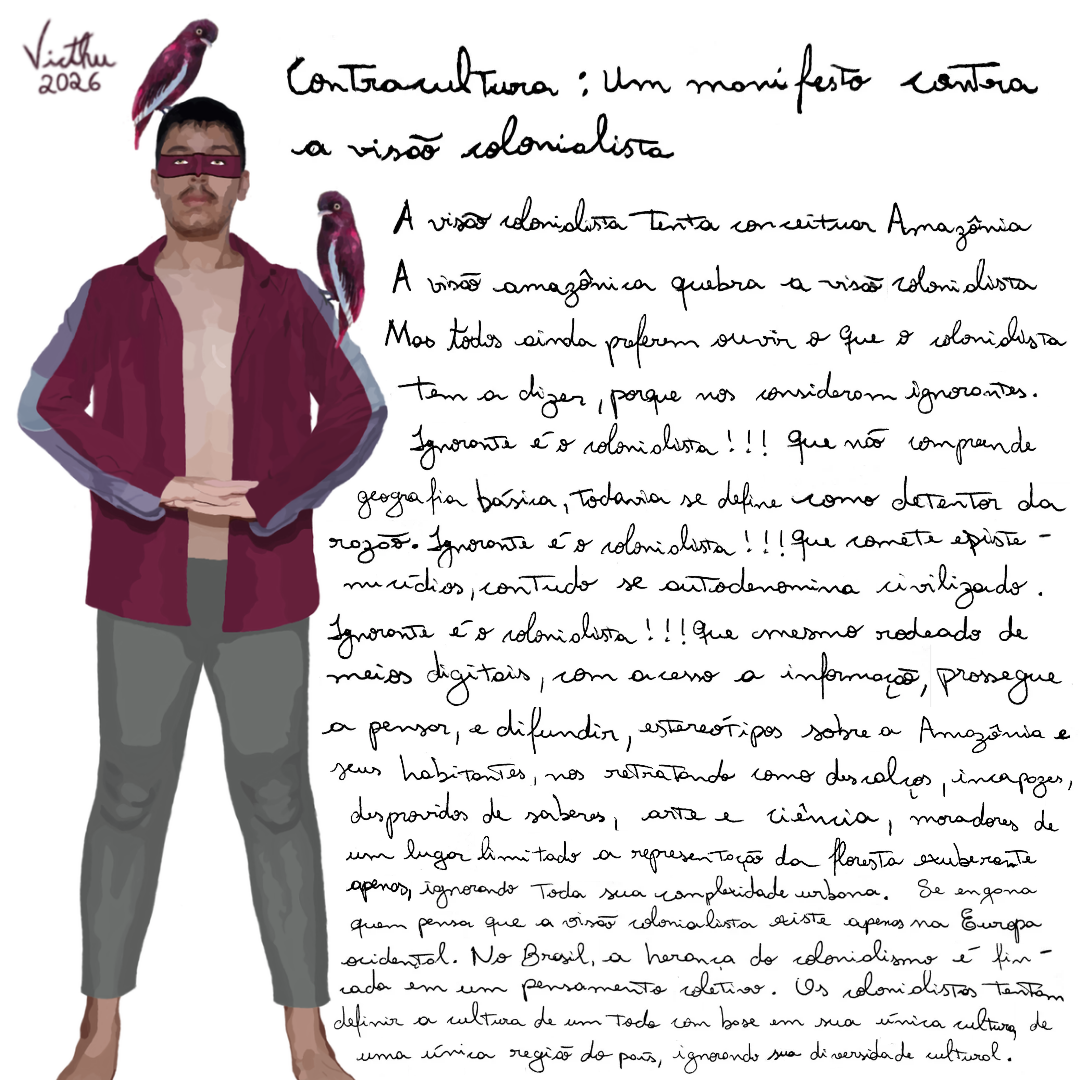 Victhu
2026
Contracultura : Um manifesto contra
a visão colonialista
A visão colonialista tenta conceituar Amazônia
A visão amazônica quebra a visão colonialista
Mas todos ainda preferem ouvir o que o colonialista
tem a dizer, porque nos consideram ignorantes.
Ignorante é o colonialista !!! Que não compreende
geografia básica, todavia se define como detentor da
razão. Ignorante é o colonialista !!! Que comete episte-
micídios, contudo se autodenomina civilizado.
Ignorante é o colonialista !!! Que mesmo rodeado de
meios digitais, com acesso a informação, prossegue
a pensar, e difundir, estereótipos sobre a Amazônia e
seus habitantes, nos retratando como descalços, incapazes,
desprovidos de saberes, arte e ciência, moradores de
um lugar limitado a representação da floresta exuberante
apenas, ignorando toda sua complexidade urbana. Se engana
quem pensa que a visão colonialista existe apenas na Europa
ocidental. No Brasil, a herança do colonialismo é fin-
cada em um pensamento coletivo. Os colonialistas tentam
definir a cultura de um todo com base em sua única cultura, de
uma única região do país, ignorando sua diversidade cultural.